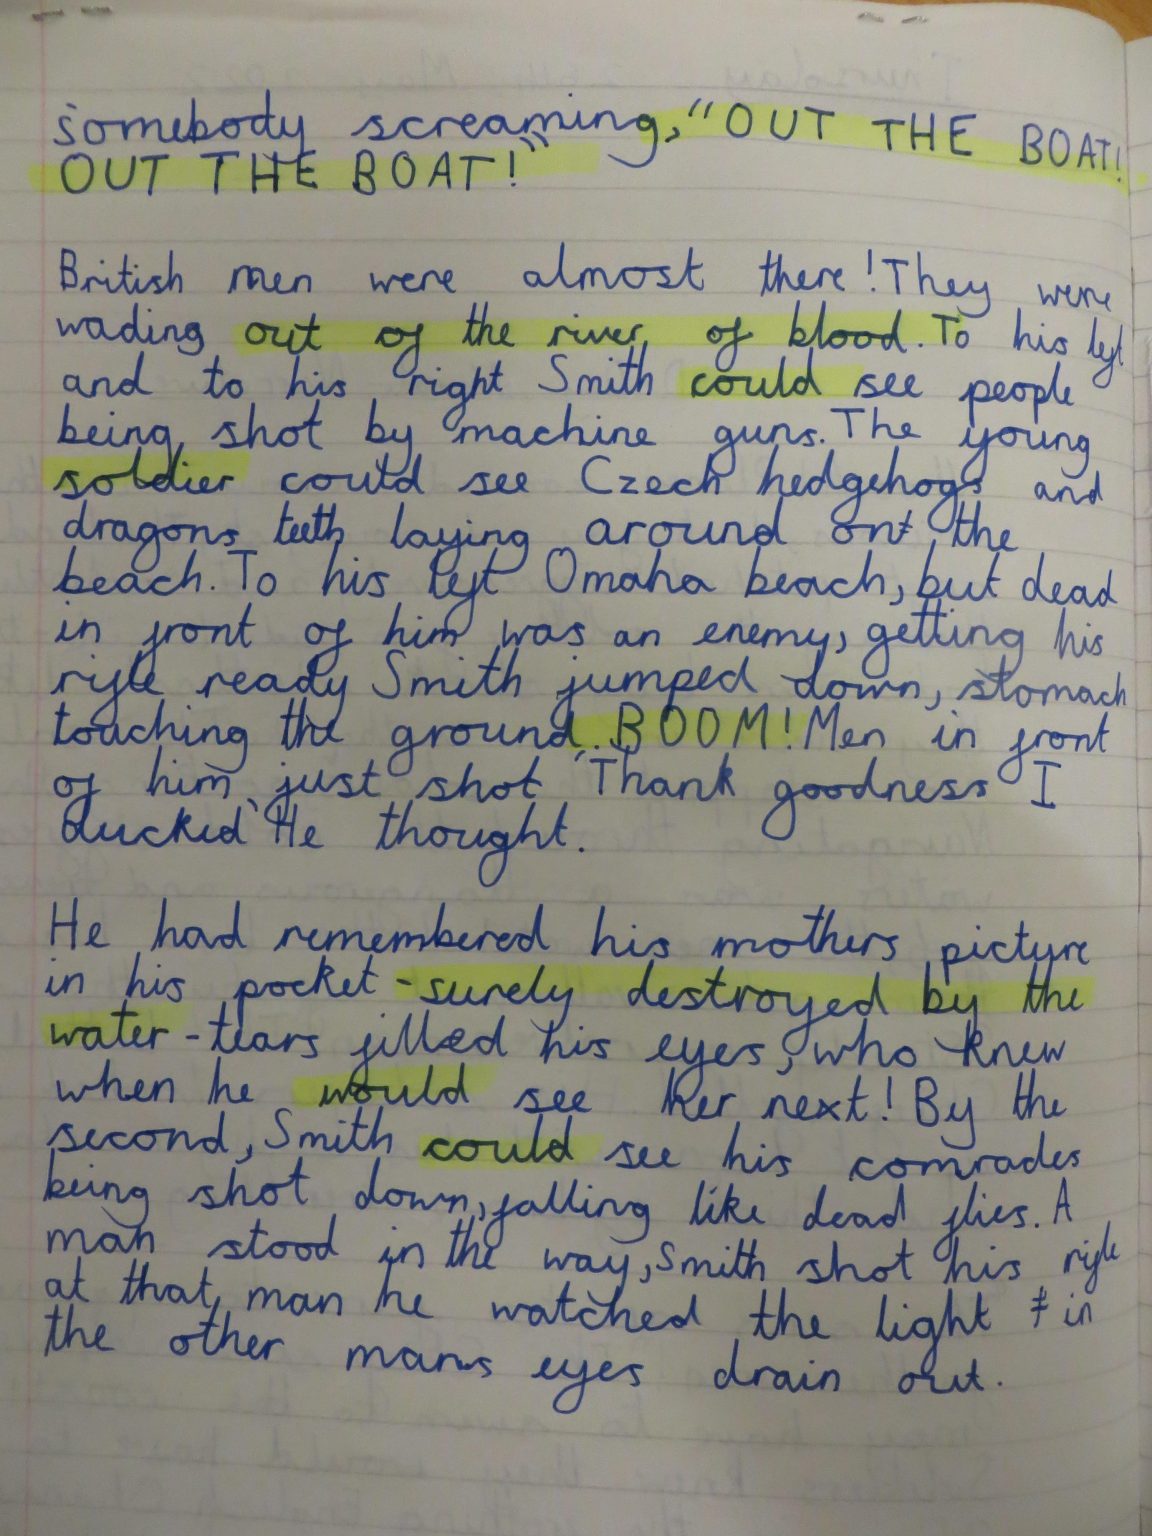 somebody screaming, "OUT THE BOAT!
OUT THE BOAT!"
British men were almost there! They were
wading out of the river of blood. To his left
and to his right Smith could see people
being shot by machine guns. The young
soldier could see Czech hedgehogs and
dragons teeth laying around on the
beach. To his left Omaha beach, but dead
in front of him was an enemy, getting his
rifle ready Smith jumped down, stomach
touching the ground. BOOM! Men in front
of him just shot 'Thank goodness I
ducked' He thought.
He had remembered his mothers picture
in his pocket - surely destroyed by the
water - tears filled his eyes, who knew
when he would see her next! By the
second, Smith could see his comrades
being shot down, falling like dead flies. A
man stood in the way, Smith shot his rifle
at that man he watched the light in
the other mans eyes drain out.